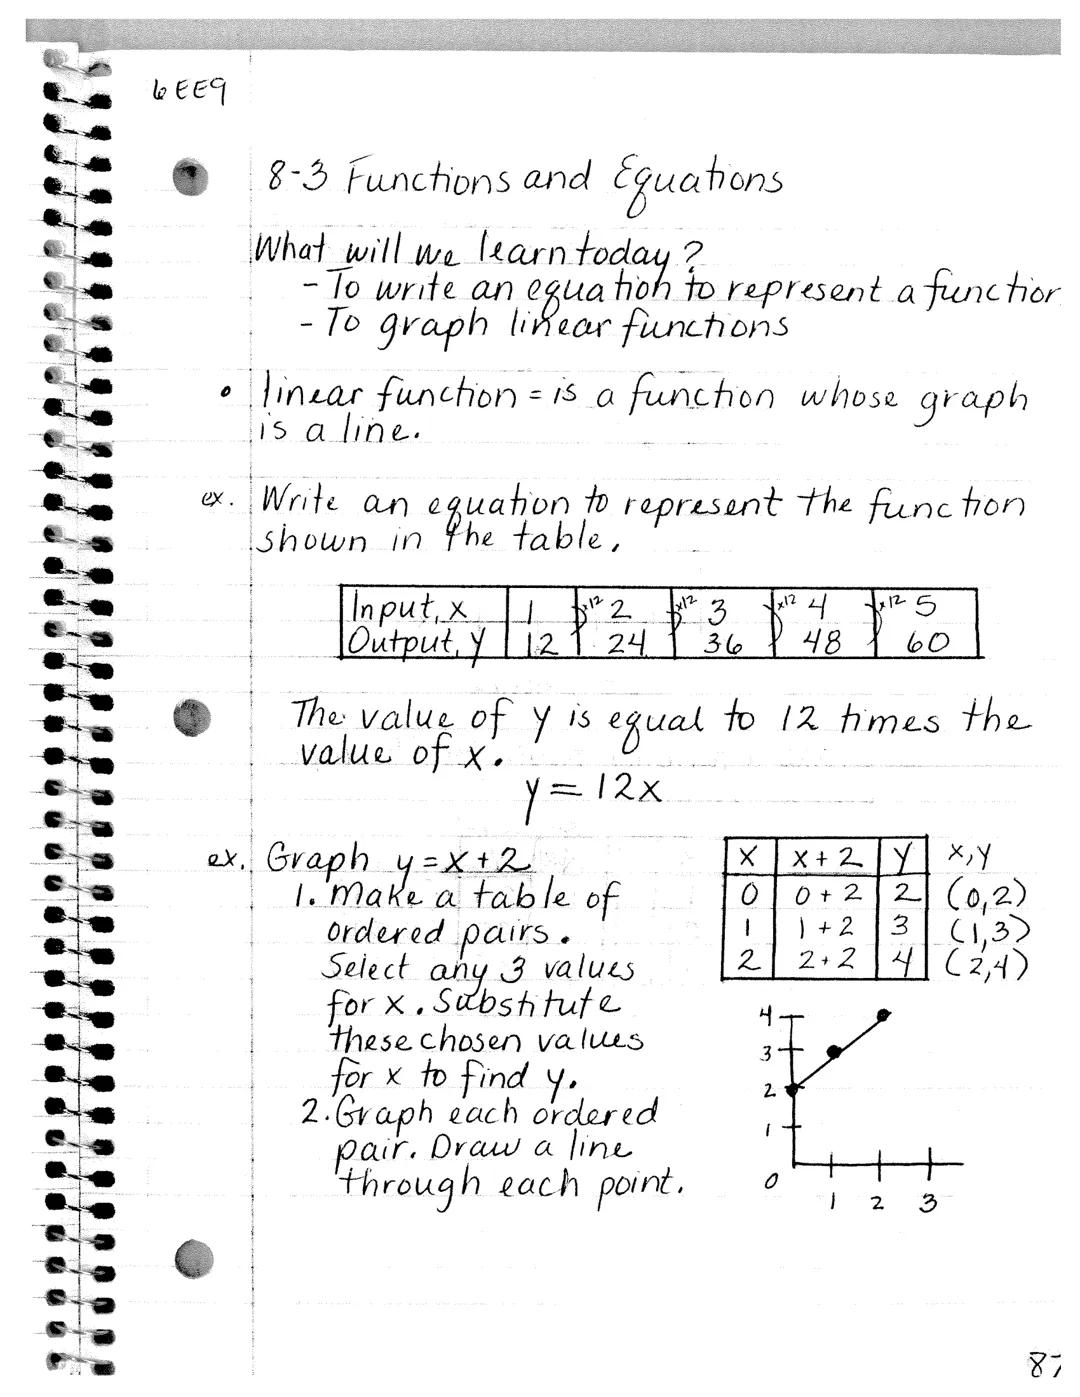 6EE9
8-3 Functions and Equations
What will we learn today?
- To write an equation to represent a function
- To graph linear functions
• linear function = is a function whose graph
is a line.
ex. Write an equation to represent the function
shown in the table.
Input, x 1 x12 2 x12 3 x12 4 x12 5
Output, y 12 24 36 48 60
The value of y is equal to 12 times the
value of x.
y = 12x
ex. Graph y = x + 2
1. Make a table of
ordered pairs.
Select any 3 values
for x. Substitute
these chosen values
for x to find y.
2. Graph each ordered
pair. Draw a line
through each point.
x x + 2 y x, y
0 0 + 2 2 (0,2)
1 1 + 2 3 (1,3)
2 2 + 2 4 (2,4)
4
3
2
1
0
1 2 3
87